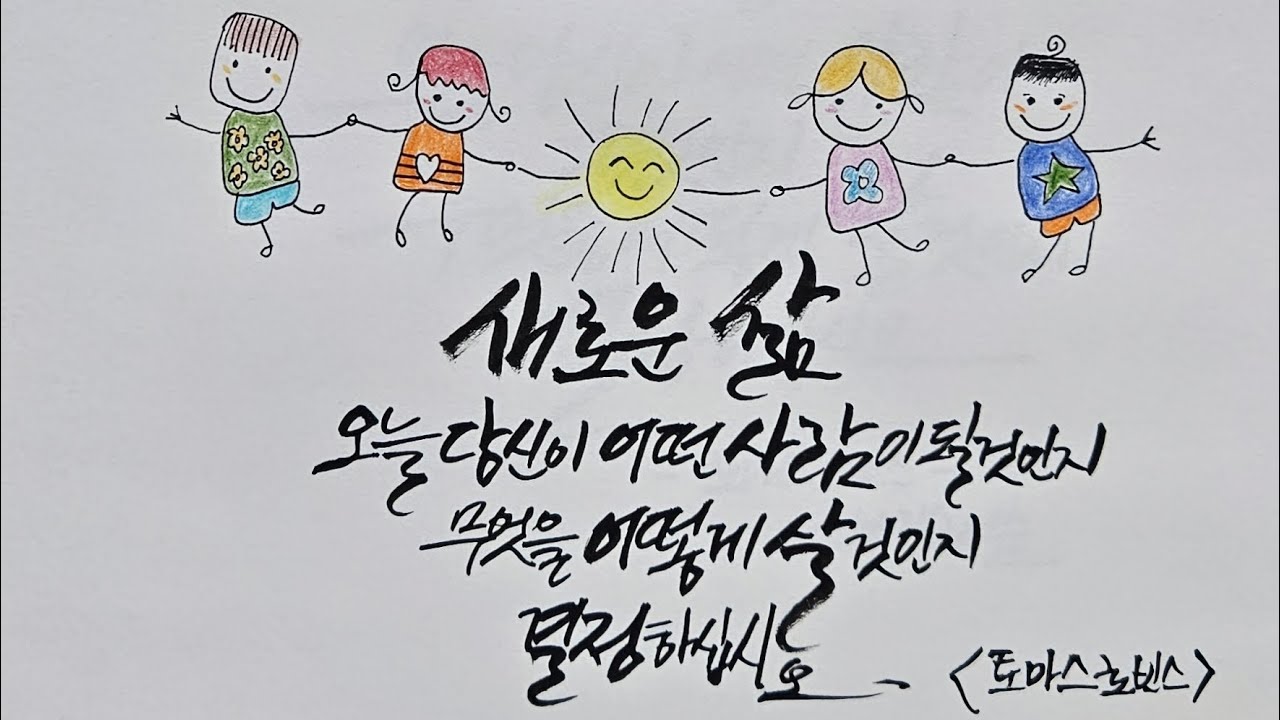 새로운 삶
오늘 당신이 어떤 사람이 될것인지
무엇을 어떻게 살것인지
결정하십시오.
<토마스 로빈스>